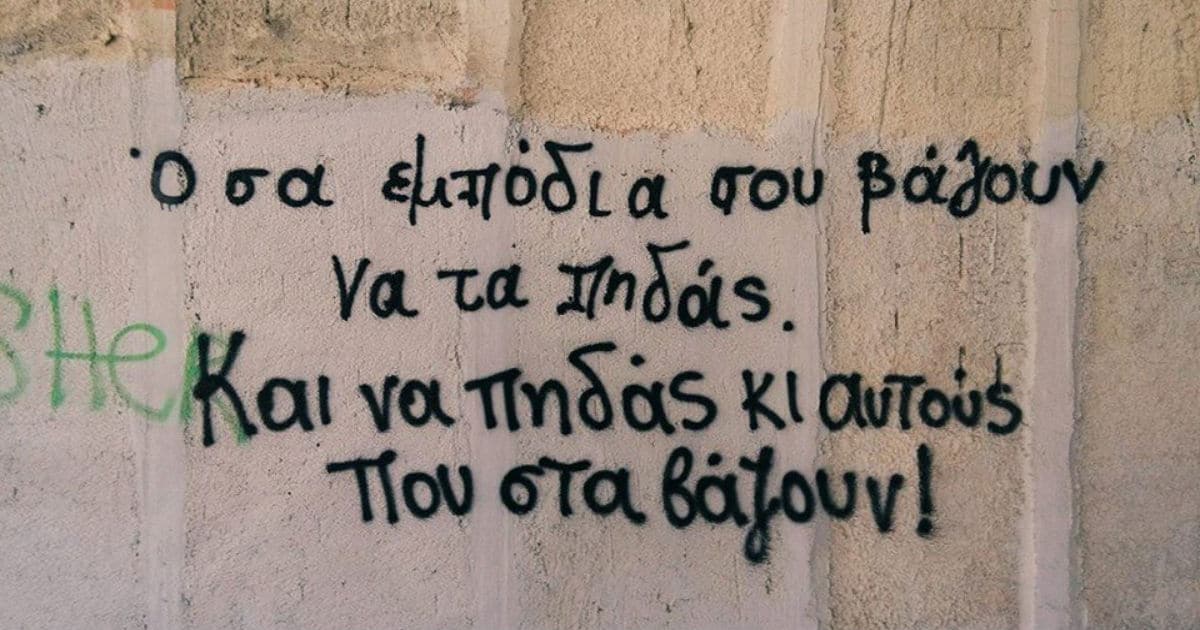 Όσα εμπόδια σου βάζουν
να τα πηδάς.
Και να πηδάς κι αυτούς
που στα βάζουν!
SHeR